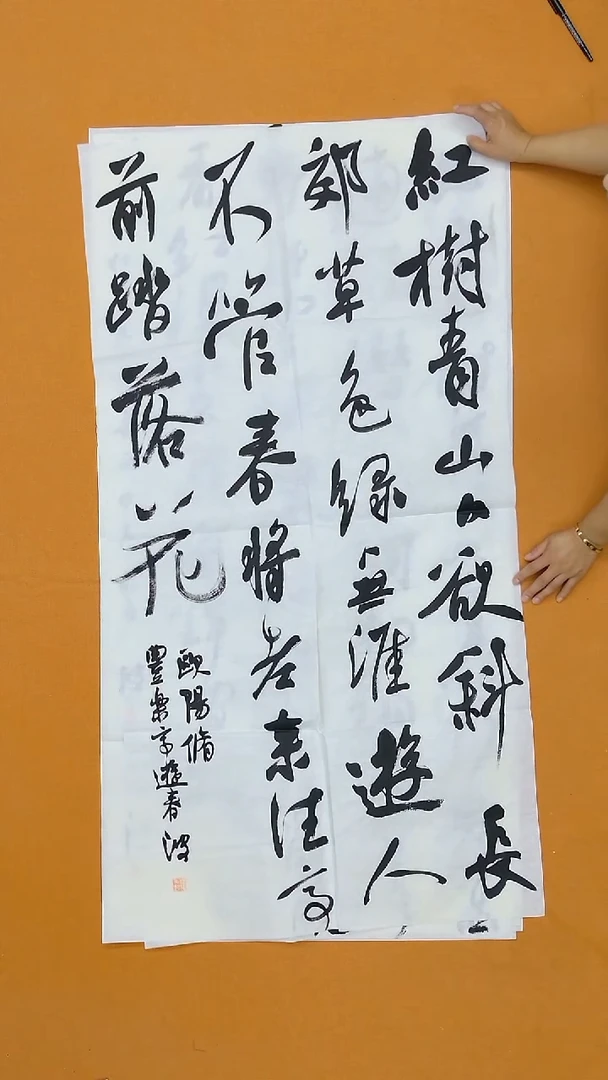 紅樹青山日欲斜長
郊草色綠無涯遊人
不管春將老来往亭
前踏落花
歐陽脩
豐樂亭遊春 波